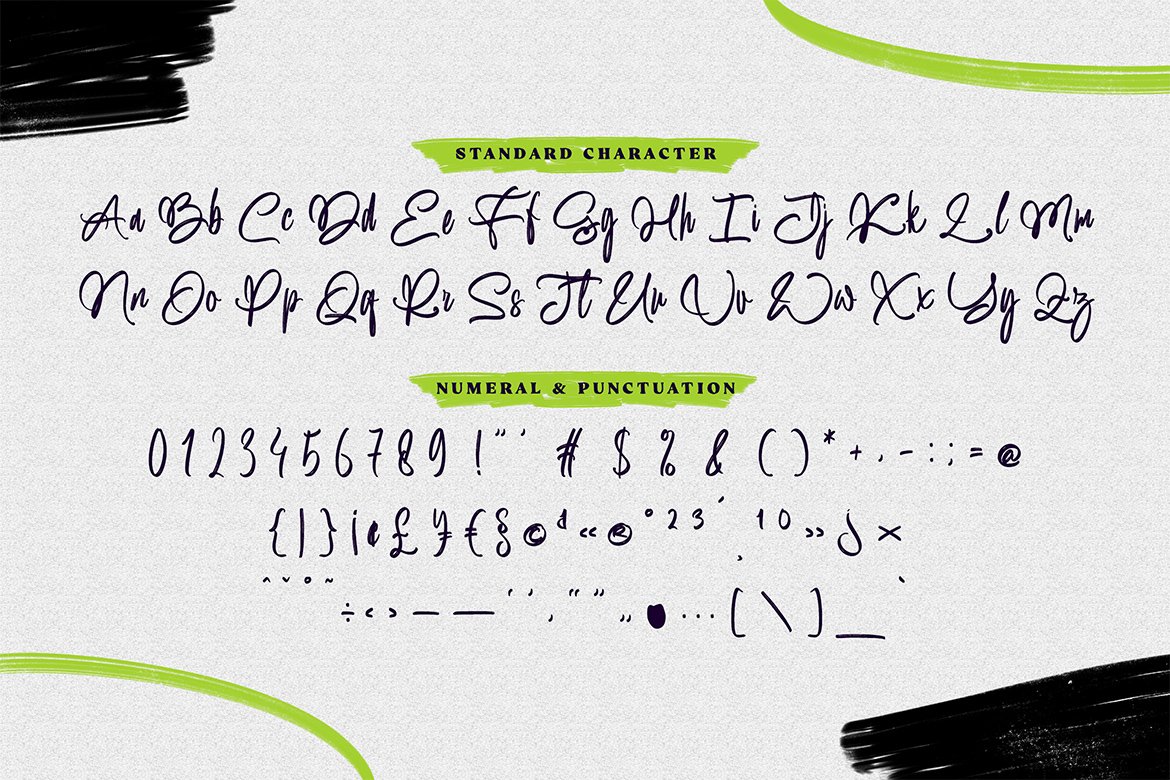 STANDARD CHARACTER
Aa Bb Cc Dd Ee Ff Gg Hh Ii Jj Kk Ll Mm
Nn Oo Pp Qq Rr Ss Tt Uu Vv Ww Xx Yy Zz
NUMERAL & PUNCTUATION
0123456789 ! " ' # $ % & ( ) * + , - : ; = @
{ | } ¡ ¢ £ ¥ € § © ª « ® ° 2 3 ´ ¸ 1 0 » ¿ ×
ˆ ˇ ˚ ˜
÷ ‹ › – — ‘ ’ ‚ “ ” „ • … [ \ ] _ `